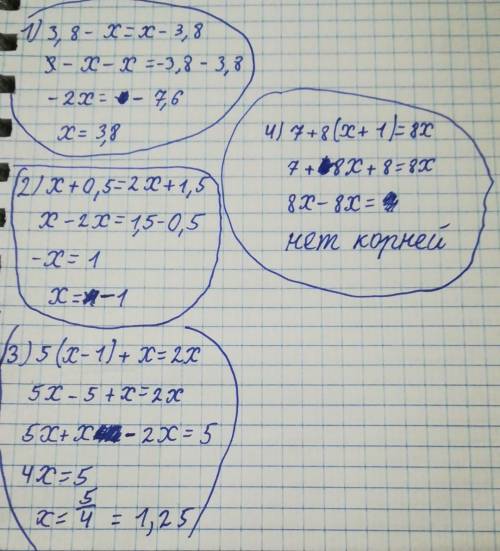 1) 3,8 - x = x - 3,8
- x - x = -3,8 - 3,8
-2x = - 7,6
x = 3,8
2) x + 0,5 = 2x + 1,5
x - 2x = 1,5 - 0,5
-x = 1
x = -1
3) 5(x-1) + x = 2x
5x - 5 + x = 2x
5x + x - 2x = 5
4x = 5
x = 5/4 = 1,25
4) 7 + 8(x + 1) = 8x
7 + 8x + 8 = 8x
8x - 8x =
нет корней